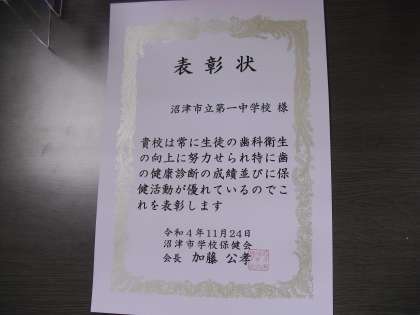 表彰状
沼津市立第一中学校 様
貴校は常に生徒の歯科衛生
の向上に努力せられ特に歯
の健康診断の成績並びに保
健活動が優れているのでこ
れを表彰します
令和4年11月24日
沼津市学校保健会
会長 加藤 公孝